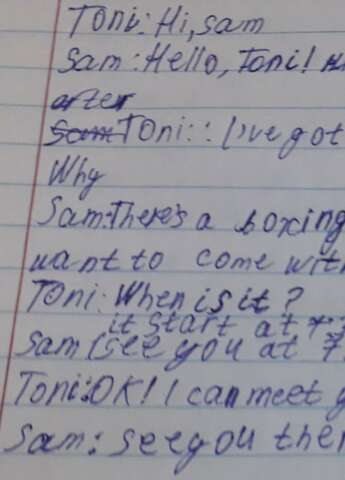 Toni: Hi, sam
Sam: Hello, Toni!
after
Sam Toni:: I've got
Why
Sam: There's a boxing
want to come with
Toni: When is it?
it start at 7:3
Sam I see you at 7
Toni: OK! I can meet
Sam: see you then